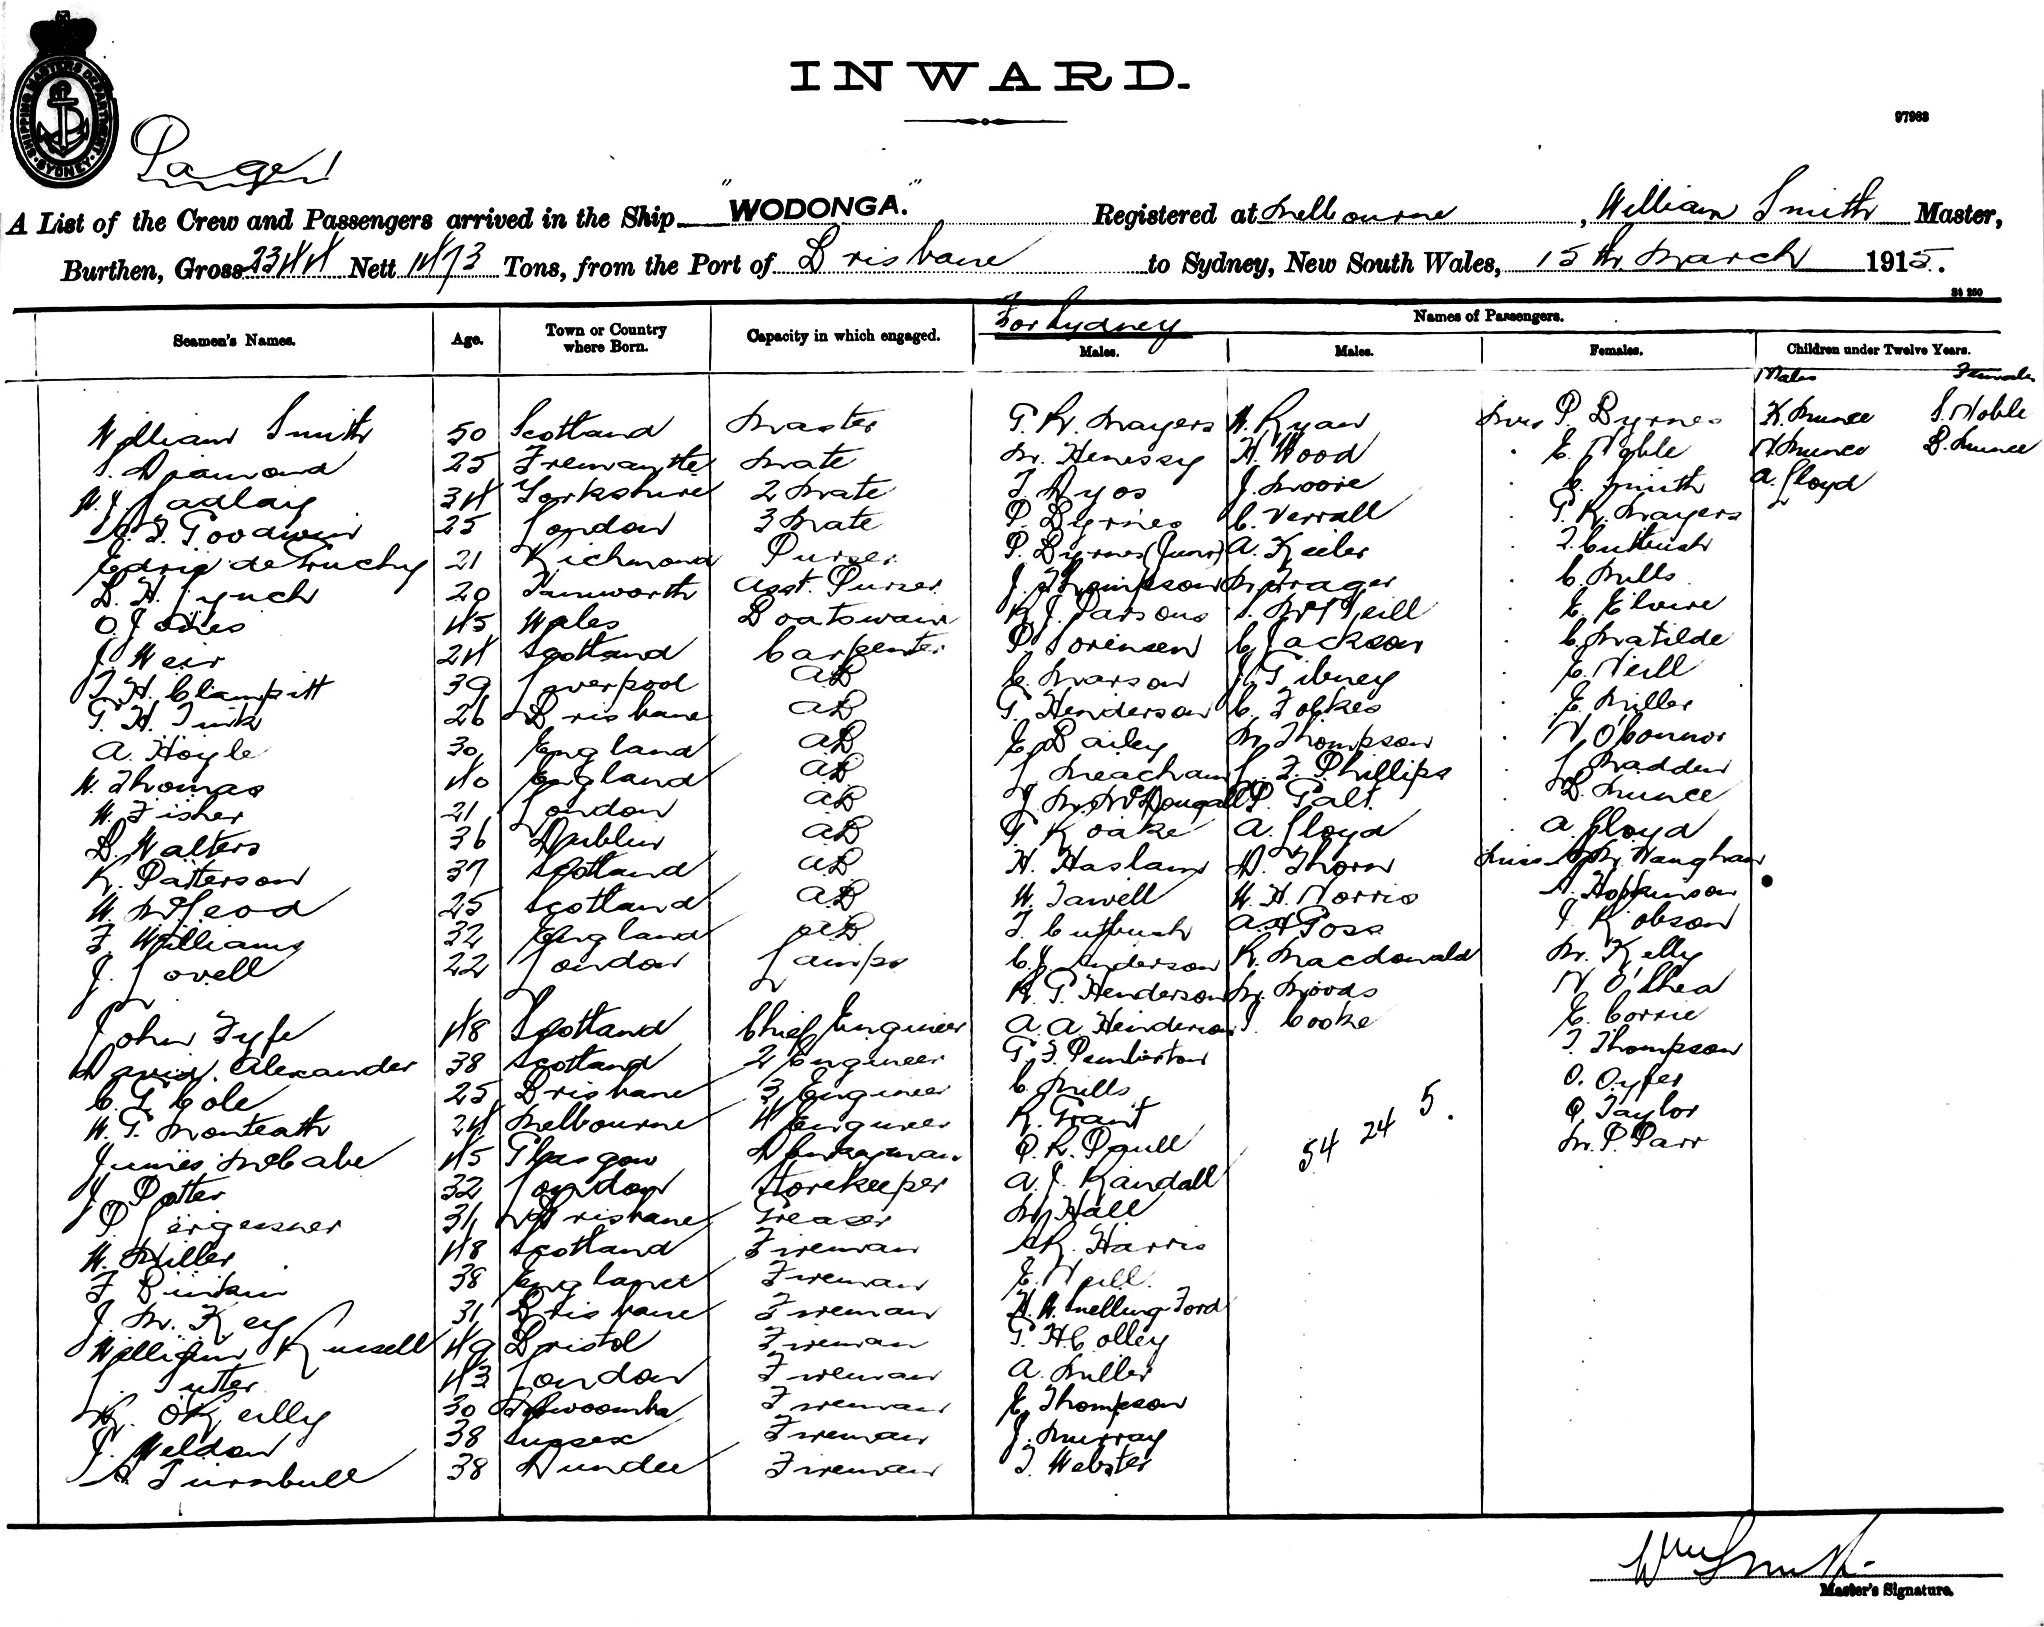 INWARD.
SHIPPING MASTERS DEPARTMENT
SYDNEY
97963
Page 1
A List of the Crew and Passengers arrived in the Ship "WODONGA." Registered at Melbourne, William Smith Master,
Burthen, Gross 2344 Nett 1473 Tons, from the Port of Brisbane to Sydney, New South Wales, 15th March 1915.
St 250
Seamen's Names. Age. Town or Country where Born. Capacity in which engaged. For Sydney Names of Passengers.
Males. Males. Females. Children under Twelve Years.
Males Females
William Smith 50 Scotland Master
S. Diamond 25 Fremantle Mate
34 Yorkshire 2 Mate
Goodwin 25 London 3 Mate
de Fruchy 21 Richmond Purser
D. H. Lynch 20 Tamworth Asst. Purser
O. Jones 45 Wales Boatswain
J. Weir 24 Scotland Carpenter
T. H. Clampitt 39 Liverpool AB
G. H. Tink 26 Brisbane AB
A. Hoyle 30 England AB
W. Thomas 40 England AB
W. Fisher 21 London AB
D. Walters 36 Dublin AB
R. Patterson 37 Scotland AB
W. McLeod 25 Scotland AB
F. Williams 32 England AB
J. Lovell 22 London Lamps
John Fyfe 48 Scotland Chief Engineer
David Alexander 38 Scotland 2 Engineer
C. G. Cole 25 Brisbane 3 Engineer
W. G. Monteath 24 Melbourne 4 Engineer
James McCabe 45 Glasgow Donkeyman
J. Potter 32 London Storekeeper
P. Jorgensner 31 Brisbane Greaser
W. Miller 48 Scotland Fireman
F. Dunkin 38 England Fireman
J. M. Key 31 Brisbane Fireman
William Russell 49 Bristol Fireman
L. Tutter 43 London Fireman
R. O'Reilly 30 Toowoomba Fireman
J. Weldon 38 Sussex Fireman
A. Turnbull 38 Dundee Fireman
G. R. Mayers
M. Henessy
T. Dyos
P. Byrnes
P. Byrnes (Junr)
J. Thompson
R. J. Parsons
P. Sorensen
C. Marson
G. Henderson
E. Bailey
L. Meacham
J. M. McDougall
G. Roake
H. Haslam
W. Tawell
T. Cutbush
C. J. Anderson
R. G. Henderson
A. A. Henderson
G. F. Pemberton
C. Mills
R. Grant
P. R. Paull
A. J. Randall
M. Hall
R. Harris
E. Neill.
H. W. Snelling Ford
G. H. Colley
A. Miller
E. Thompson
J. Murray
T. Webster
W. Ryan
H. Wood
J. Moore
C. Verrall
A. Keiler
M. Trager
S. McNeill
C. Jackson
J. Tibney
C. Folkes
M. Thompson
L. F. Phillips
P. Galt.
A. Lloyd
D. Thorn
W. H. Norris
A. H. Goss
R. Macdonald
M. Moods
S. Cooke
54 24 5.
Mrs P. Byrnes
E. Noble
C. Smith
G. R. Mayers
T. Cutbush
C. Mills
E. Elvire
C. Matilde
E. Neill
E. Miller
N. O'Connor
L. Madden
D. Munce
A. Lloyd
Miss M. Vaughan
A. Hopkinson
J. Robson
M. Kelly
N. O'Shea
E. Corrie
T. Thompson
O. Oyfer
P. Taylor
M. P. Parr
K. Munce S. Noble
N. Munce D. Munce
A. Lloyd
Wm Smith
Master's Signature.